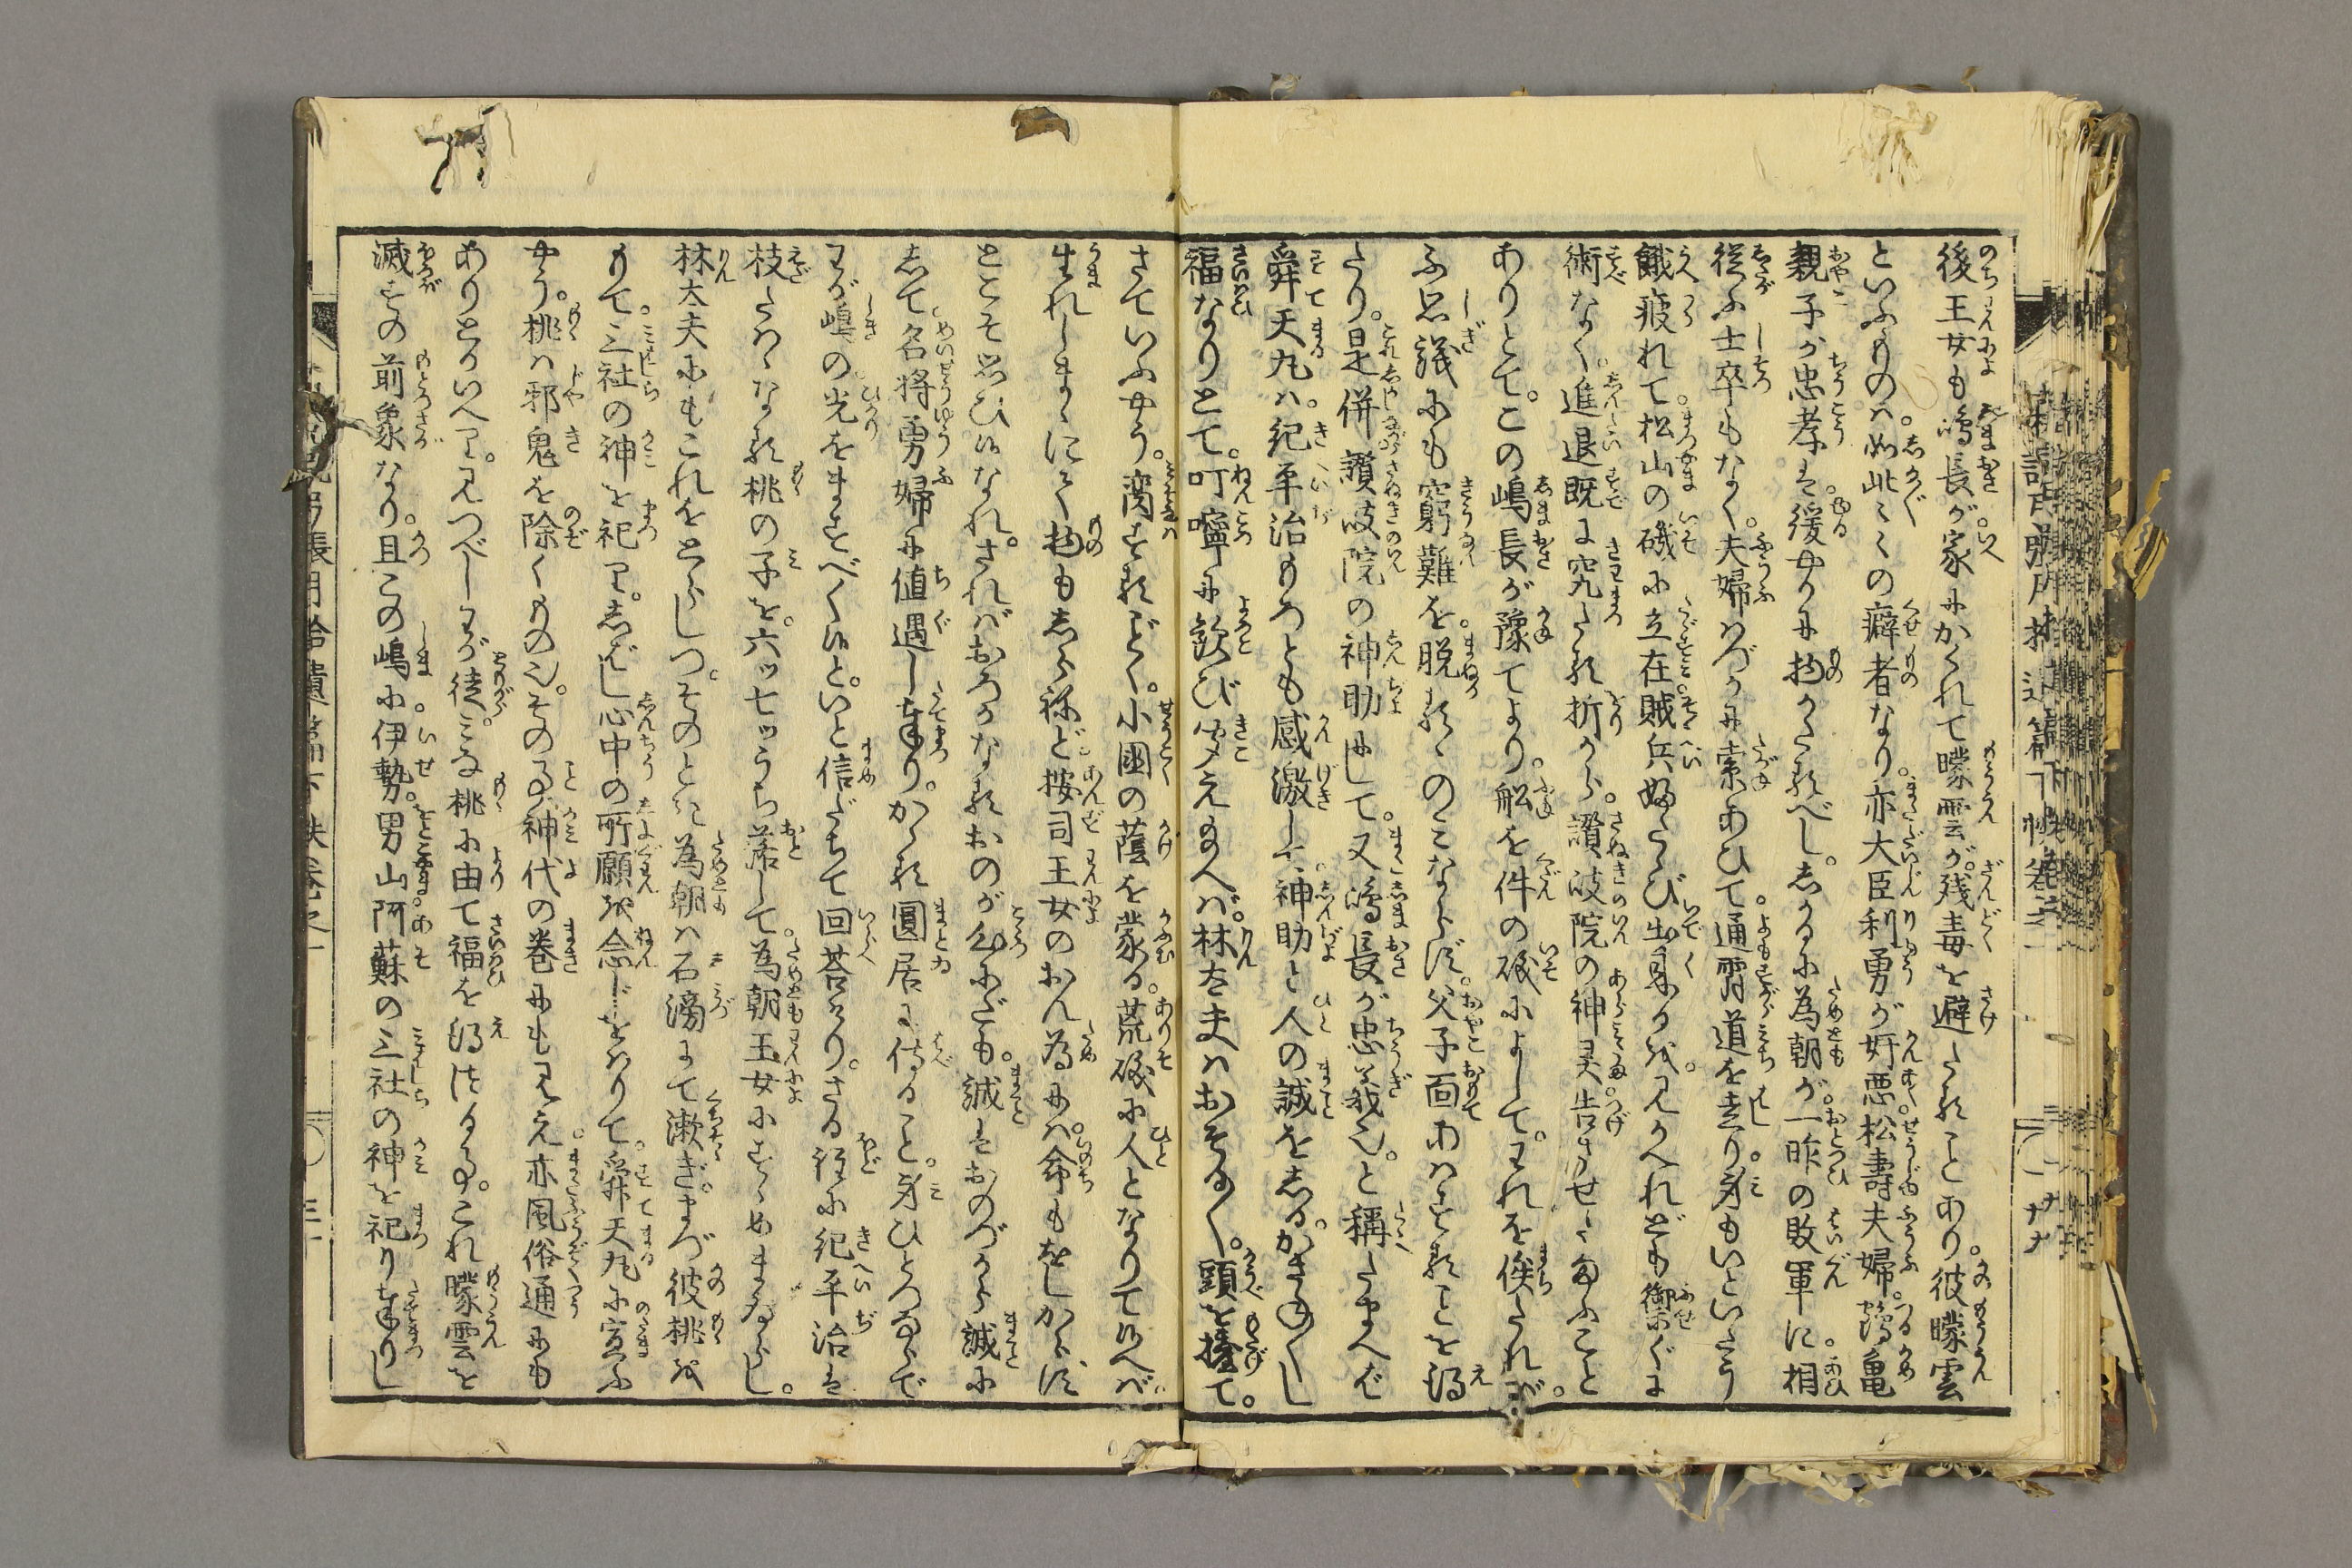 後王女も嶋長が家にかくれて曚雲が残毒を避たることあり。彼曚雲
といふものは。如此〳〵の癖者なり。亦大臣利勇が奸悪。松壽夫婦。鶴亀
親子が忠孝は。緩やかに物かたるべし。しかるに為朝が。一昨の敗軍に。相
従ふ士卒もなく。夫婦はづかに索あひて。通宵道を走り。身もいといたう
餓疲れて。松山の磯に立在。賊兵婦たび出来るを。見かへれども禦ぐに
術なく。進退既に究たる折から。讃岐院の神灵告させ給ふこと
ありとて。この嶋長が豫てより。船を件の磯によして。われを俟たれば。
ふ思議にも窮難を。脱るゝのみならず。父子面あはすることを得
たり。是併讃岐院の神助にして。又嶋長が忠義也。と稱たまへば
舜天丸は。紀平治もろとも感激し。神助と人の誠をしる。かさね〴〵し
福なりとて。叮嚀に歓び聞え給へば。林太夫はおそる〳〵。頭を擡て。
さていふやう。蛮するどく。小國の蔭を蒙る。荒磯に人となりて候へば。
生れしまゝにて物もしら祢ど。按司王女のおん為には。命もをしからず
とこそ思ひ候なれ。さればおろかなるおのが心にだも。誠はおのづから誠に
して。名将勇婦に値遇し奉り。かゝる圓居に侍ること。身ひとつならで
わが嶋の光をますべく候と。いと信だちて回荅けり。さる程に紀平治は
枝たはゝなる桃の子を。六ッ七ッうち落して。為朝王女にすゝめまゐらし。
林太夫にもこれをとらしつ。そのとき為朝は石滂にて漱ぎ。まづ彼桃を
もて。三社の神を祀り。しばし心中の所願を念じをはりて。舜天丸に宣ふ
やう。桃は邪鬼を除くもの也。その事神代の巻にも見え。亦風俗通にも
ありとかいへり。見つべしわが徒。みな桃に由て福を得ける事。これ曚雲を
滅すの前象なり。且この嶋に伊勢。男山。阿蘇の三社の神を祀り奉りし